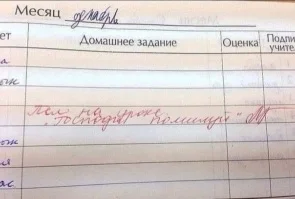 Месяц декабрь
ет Домашнее задание Оценка Подпи
учител
а
ож
Пел на уроке
"Господи помилуй"
ож
я
ас